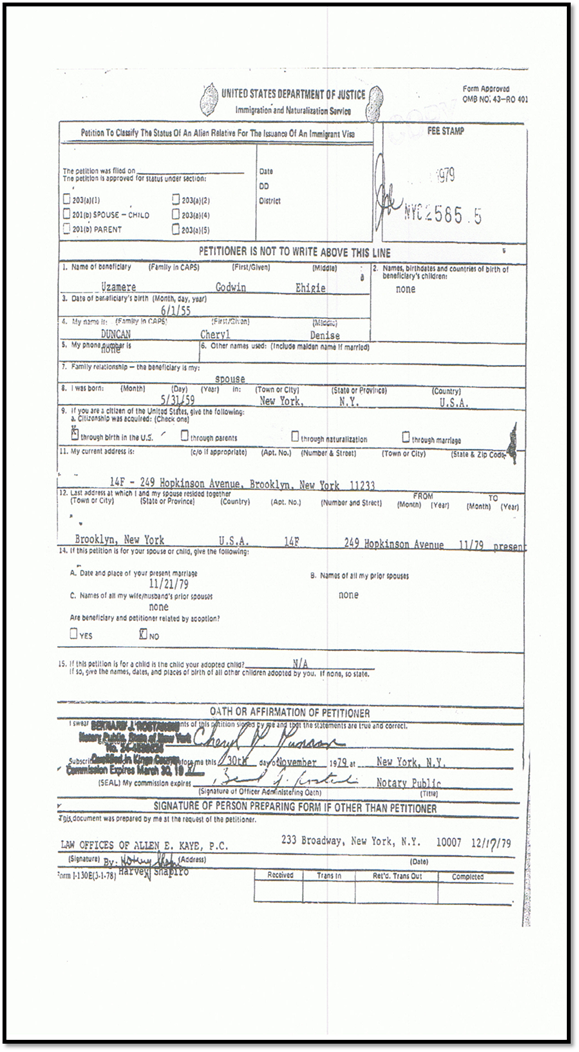 UNITED STATES DEPARTMENT OF JUSTICE
Immigration and Naturalization Service
Form Approved
OMB NO. 43-RO 401
Petition To Classify The Status Of An Alien Relative For The Issuance Of An Immigrant Visa
FEE STAMP
The petition was filed on
The petition is approved for status under section:
203(a)(1) 203(a)(2)
201(b) SPOUSE - CHILD 203(a)(4)
201(b) PARENT 203(a)(5)
Date
DD
District
1979
NYC2585.5
PETITIONER IS NOT TO WRITE ABOVE THIS LINE
1. Name of beneficiary (Family in CAPS) (First/Given) (Middle)
Uzamere Godwin Ehigie
2. Names, birthdates and countries of birth of beneficiary's children:
none
3. Date of beneficiary's birth (Month, day, year)
6/1/55
4. My name is: (Family in CAPS) (First/Given) (Middle)
DUNCAN Cheryl Denise
5. My phone number is
none
6. Other names used: (Include maiden name if married)
7. Family relationship - the beneficiary is my:
spouse
8. I was born: (Month) (Day) (Year) in: (Town or City) (State or Province) (Country)
5/31/59 New York, N.Y. U.S.A.
9. If you are a citizen of the United States, give the following:
a. Citizenship was acquired: (Check one)
X through birth in the U.S. through parents through naturalization through marriage
11. My current address is: (c/o if appropriate) (Apt. No.) (Number & Street) (Town or City) (State & Zip Code)
14F - 249 Hopkinson Avenue, Brooklyn, New York 11233
12. Last address at which I and my spouse resided together FROM TO
(Town or City) (State or Province) (Country) (Apt. No.) (Number and Street) (Month) (Year) (Month) (Year)
Brooklyn, New York U.S.A. 14F 249 Hopkinson Avenue 11/79 present
14. If this petition is for your spouse or child, give the following:
A. Date and place of your present marriage
11/21/79
B. Names of all my prior spouses
none
C. Names of all my wife/husband's prior spouses
none
Are beneficiary and petitioner related by adoption?
YES X NO
15. If this petition is for a child is the child your adopted child? N/A
If so, give the names, dates, and places of birth of all other children adopted by you. If none, so state.
OATH OR AFFIRMATION OF PETITIONER
I swear of this petition signed by me and that the statements are true and correct.
BERNARD J. ROSTANSKI
Notary Public, State of New York
Qualified in Kings County
Commission Expires March 30, 19
Cheryl D. Duncan
30th day of November 1979 at New York, N.Y.
(SEAL) My commission expires Notary Public
(Signature of Officer Administering Oath) (Title)
SIGNATURE OF PERSON PREPARING FORM IF OTHER THAN PETITIONER
This document was prepared by me at the request of the petitioner.
LAW OFFICES OF ALLEN E. KAYE, P.C. 233 Broadway, New York, N.Y. 10007 12/17/79
(Signature) By: (Address) (Date)
Harvey Shapiro
Form I-130E(3-1-78)
Received Trans In Ret'd. Trans Out Completed